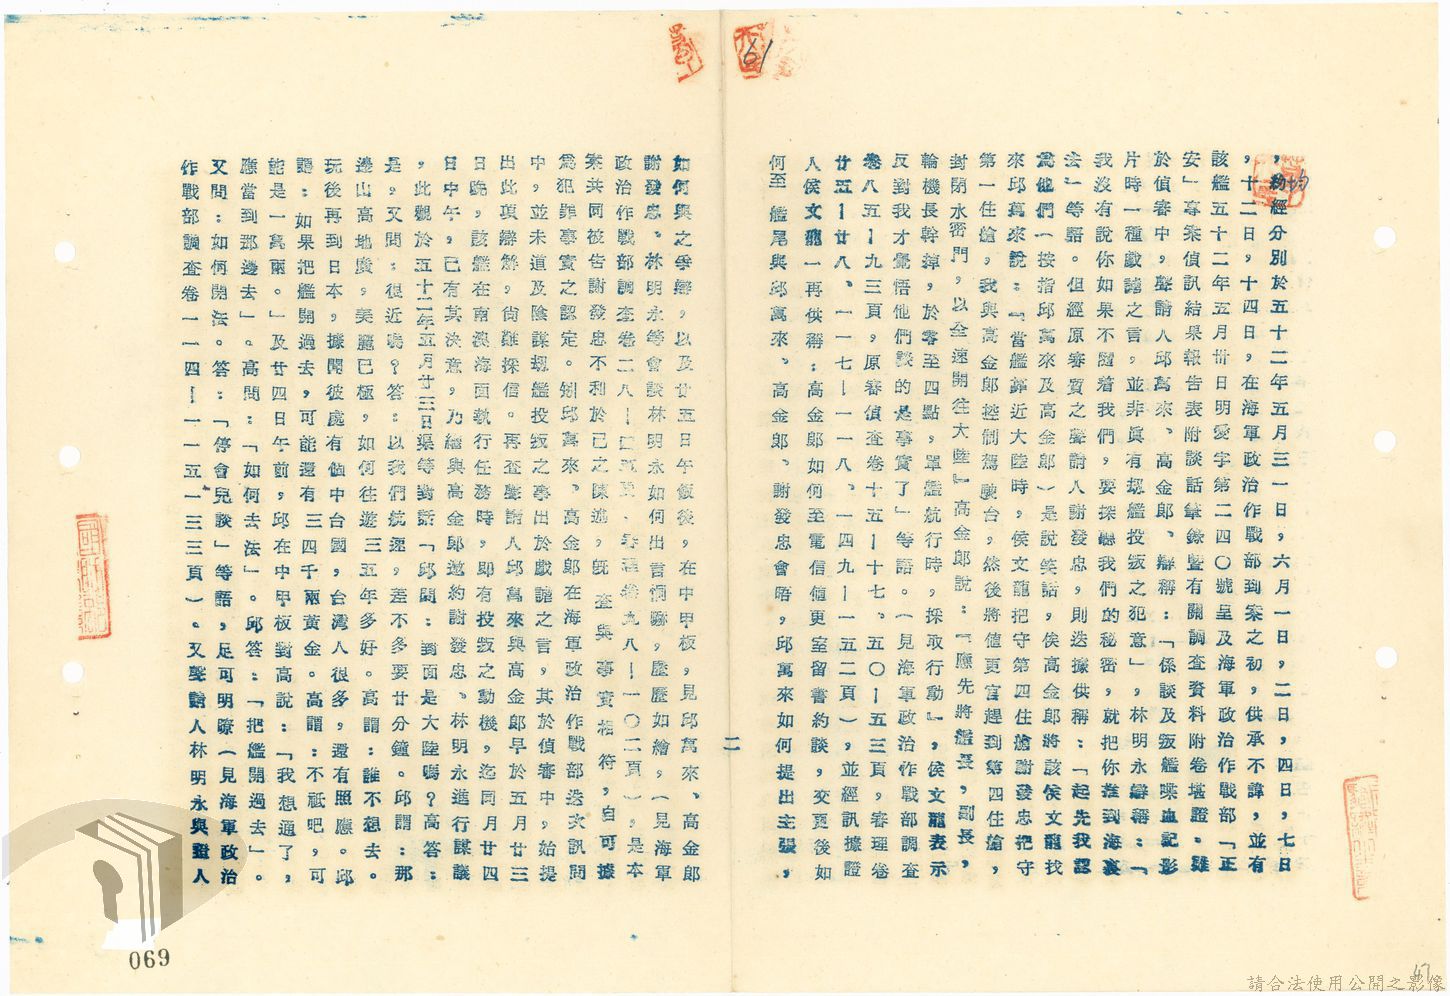 61
均
，均經分別於五十二年五月三一日，六月一日，二日，四日，七日
，十二日，十四日，在海軍政治作戰部到案之初，供承不諱，並有
該艦五十二年五月卅日明愛字第二四〇號呈及海軍政治作戰部「正
安」專案偵訊結果報告表附談話筆錄暨有關調查資料附卷堪證。雖
於偵審中，聲請人邱萬來、高金郎、辯稱：「係談及叛艦喋血記影
片時一種戲謔之言，並非真有刼艦投叛之犯意」，林明永辯稱：「
我沒有說你如果不隨着我們，要探聽我們的秘密，就把你推到海裏
去」等語。但經原審質之聲請人謝發忠，則迭據供稱：「起先我認
為他們（按指邱萬來及高金郎）是說笑話，俟高金郎將該侯文龍找
來邱萬來說：『當艦靠近大陸時，侯文龍把守第四住艙謝發忠把守
第一住艙，我與高金郎控制駕駛台，然後將值更官趕到第四住艙，
封閉水密門，以全速開往大陸』高金郎說：『應先將艦長，副長，
輪機長幹掉，於零至四點，單艦航行時，採取行動』，侯文龍表示
反對我才覺悟他們談的是事實了」等語。（見海軍政治作戰部調查
卷八五—九三頁，原審偵查卷十五—十七、五〇—五三頁，審理卷
廿五—廿八、一一七—一一八、一四九—一五二頁），並經訊據證
人侯文龍一再供稱：高金郎如何至電信值更室留書約談，交更後如
何至艦尾與邱萬來、高金郎、謝發忠會晤，邱萬來如何提出主張，
二
如何與之爭辯，以及廿五日午飯後，在中甲板，見邱萬來、高金郎
謝發忠、林明永等會談林明永如何出言恫嚇，歷歷如繪，（見海軍
政治作戰部調查卷二八—頁、卷九八—一〇二頁），是本
案共同被告謝發忠不利於己之陳述，既查與事實相符，自可據
為犯罪事實之認定。矧邱萬來、高金郎在海軍政治作戰部迭次訊問
中，並未道及陰謀刼艦投叛之事出於戲謔之言，其於偵審中，始提
出此項辯解，尙難採信。再查聲請人邱萬來與高金郎早於五月廿三
日晚，該艦在南澳海面執行任務時，即有投叛之動機，迄同月廿四
日中午，已有其決意，乃繼與高金郎邀約謝發忠、林明永進行謀議
，此觀於五十二年五月廿三日渠等對話「邱問：對面是大陸嗎？高答：
是，又問：很近嗎？答：以我們航速，差不多要廿分鐘。邱謂：那
邊山高地廣，美麗已極，如何往遊三五年多好。高謂：誰不想去。
玩後再到日本，據聞彼處有個中台國，台灣人很多，還有照應。邱
謂：如果把艦開過去，可能還有三四千兩黃金。高謂：不祇吧，可
能是一萬兩。」及廿四日午前，邱在中甲板對高說：「我想通了，
應當到那邊去」。高問：「如何去法」。邱答：「把艦開過去」。
又問：如何開法。答：「停會兒談」等語，足可明瞭（見海軍政治
作戰部調查卷一一四—一一五一三三頁）。又聲請人林明永與證人
069
47
請合法使用公開之影像